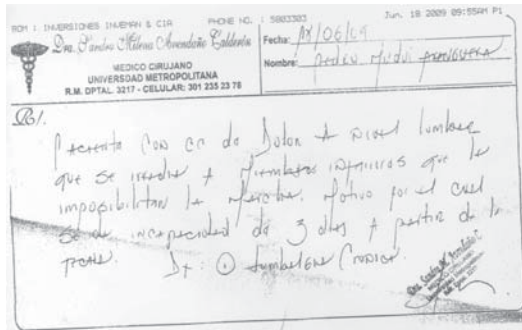 ROM : INVERSIONES INVEMAN & CIA PHONE NO. : 5803303 Jun. 18 2009 09:55AM P1
Dra. Sandra Milena Avendaño Calderón
MEDICO CIRUJANO
UNIVERSIDAD METROPOLITANA
R.M. DPTAL. 3217 - CELULAR: 301 235 23 78
Fecha: 18/06/09
Nombre: Pedro
R/.
Paciente con cc de Dolor A nivel lumbar
que se irradia A Miembros inferiores que le
imposibilitan la Marcha. Motivo por el cual
se da incapacidad de 3 dias A partir de la
fecha. Dx: ① Lumbalgia Cronica.